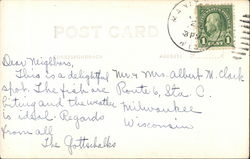 POST CARD
1
Dear Neighbors,
This is a delightful
spot. The fish are
biting and the weather
is ideal. Regards
from all
The Gottschalks
Mr & Mrs. Albert M. Clark
Route 6, Sta. C.
Milwaukee
Wisconsin